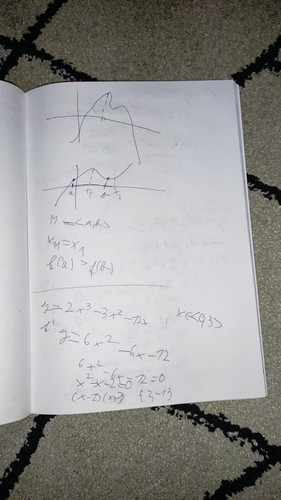 M = <a,b>
x_M = x_1
f(a) > f(b)
y = 2x³ - 3x² - 12x x ∈ <0,3>
y = 6x² - 6x - 12
6x² - 6x - 12 = 0
x² - x - 2 = 0
(x-2)(x+1) {2, -1}